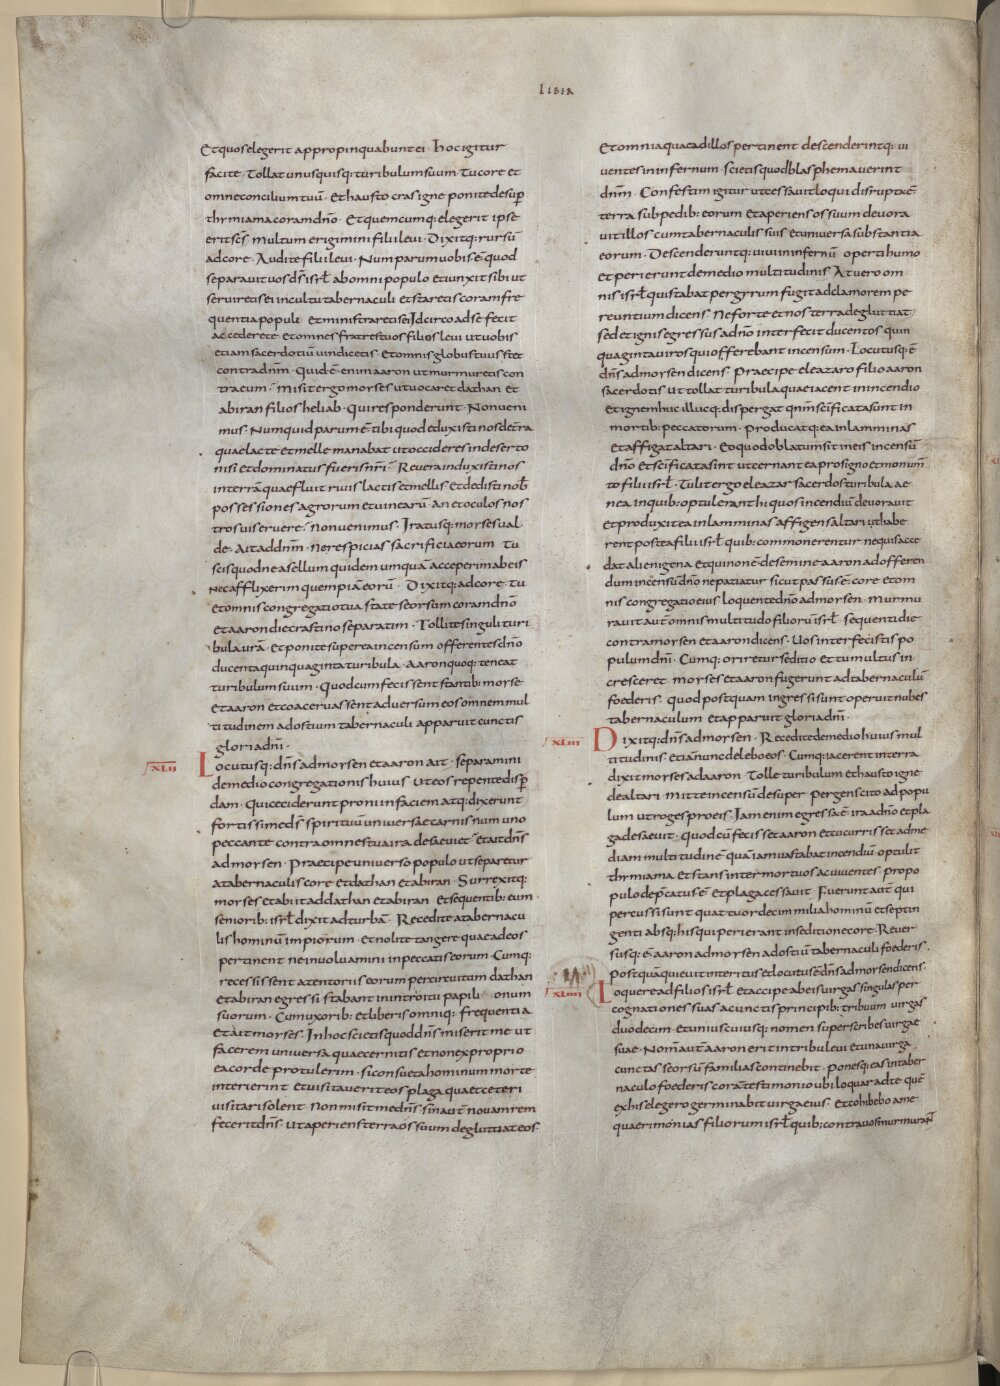 LIBER
Et quos elegerit appropinquabunt ei · hoc igitur
facite · Tollat unusquisq; turibulum suum · Tu core et
omne concilium tuũ · Et hausto cras igne ponite desup
thymiama coram dño · Et quemcumq; elegerit ipse
erit sc̃s · multum erigimini filii levi · Dixitq; rursũ
ad core · Audite filii levi · Num parum vobis ẽ quod
separavit vos d̃s isrł ab omni populo et iunxit sibi ut
serviretis ei in cultu tabernaculi et staretis coram fre
quentia populi et ministraretis ei Idcirco ad se fecit
accedere te et omnes fratres tuos filios levi ut vobis
etiam sacerdotiũ vindicetis · Et omnis globus tuus stet
contra dnm̃ · Quid ẽ enim aaron ut murmuretis con
tra eum · misit ergo moyses ut vocaret dathan et
abiran filios heliab · Qui responderunt · Non veni
mus · Numquid parum ẽ tibi quod eduxisti nos de t̃ra
quae lacte et melle manabat ut occideres in deserto
nisi et dominatus fueris nr̃i · Revera induxisti nos
in terrã quae fluit rivis lactis et mellis et dedisti nob̃
possessiones agrorum et vinearũ · An et oculos nos
tros vis eruere · non venimus · Iratusq; moyses val
de · Ait ad dnm̃ · ne respicias sacrificia eorum · Tu
scis quod ne asellum quidem umquã acceperim ab eis
nec afflixerim quempiã eorũ · Dixitq; ad core · tu
et omnis congregatio tua state seorsum coram dño
et aaron die crastino separatim · Tollite singuli turi
bula vr̃a · et ponite super ea incensum offerentes dño
ducenta quinquaginta turibula · Aaron quoq; teneat
turibulum suum · Quod cum fecissent stantib; moyse
et aaron et coacervassent adversum eos omnem mul
titudinem ad ostium tabernaculi apparuit cunctis
gloria dñi ·
XLII
Locutusq; dñs ad moysen et aaron ait · separamini
de medio congregationis huius ut eos repente disp
dam · Qui ceciderunt proni in faciem atq; dixerunt
fortissime d̃s spirituũ universae carnis num uno
peccante contra omnes tua ira desaeviet · et ait dñs
ad moysen · Praecipe universo populo ut separetur
a tabernaculis core et dathan et abiran · Surrexitq;
moyses et abiit ad dathan et abiran et sequentib; eum
seniorib; isrł dixit ad turbã · Recedite a tabernacu
lis hominũ impiorum · et nolite tangere quae ad eos
pertinent ne involvamini in peccatis eorum · Cumq;
recessissent a tentoriis eorum per circuitum dathan
et abiran egressi stabant in introitu papilionum
suorum · Cum uxorib; et liberis omniq; frequentia
et ait moyses · In hoc scietis quod dñs miserit me ut
facerem universa quae cernitis et non ex proprio
ea corde protulerim · si consueta hominum morte
interierint et visitaverit eos plaga quae et ceteri
visitari solent · Non misit me dñs · sin aut̃ novam rem
fecerit dñs · ut aperiens terra os suum degluttiat eos
et omnia quae ad illos pertinent descenderintq; vi
ventes in infernum · scietis quod blasphemaverint
dnm̃ · Confestim igitur ut cessavit loqui disrupta ẽ
terra sub pedib; eorum et aperiens os suum devora
vit illos cum tabernaculis suis et universa substantia
eorum · Descenderuntq; vivi in infernũ operti humo
et perierunt de medio multitudinis · At vero om
nis isrł qui stabat per gyrum fugit ad clamorem pe
reuntium dicens · Ne forte et nos terra degluttiat
sed et ignis egressus a dño interfecit ducentos quin
quaginta viros qui offerebant incensum · Locutusq; ẽ
dñs ad moysen dicens · Praecipe eleazaro filio aaron
sacerdotis ut tollat turibula quae iacent in incendio
et ignem huc illucq; dispergat qnm̃ scificata sunt in
mortib; peccatorum · Producatq; ea in lamminas
et affigat altari · Eo quod oblatum sit in eis incensũ
dño et scificata sint ut cernant ea pro signo et monum̃
to filii isrł · Tulit ergo eleazar sacerdos turibula ae
nea · in quib; optulerant hi quos incendiũ devoravit
et produxit ea in lamminas affigens altari ut habe
rent postea filii isrł quib; commonerentur ne quis acce
dat alienigena et qui non ẽ de semine aaron ad offeren
dum incensũ dño ne patiatur sicut passus ẽ core et om
nis congregatio eius loquente dño ad moysen · Murmu
ravit aut̃ omnis multitudo filiorũ isrł sequenti die
contra moysen et aaron dicens · Vos interfecistis po
pulum dñi · Cumq; oriretur seditio et tumultus in
cresceret · moyses et aaron fugerunt ad tabernaculũ
foederis · quod postquam ingressi sunt operuit nubes
tabernaculum et apparuit gloria dñi ·
XLIII
Dixitq; dñs ad moysen · Recedite de medio huius mul
titudinis etiã nunc delebo eos · Cumq; iacerent in terra
dixit moyses ad aaron · Tolle turibulum et hausto igne
de altari mitte incensũ desuper pergens cito ad popu
lum ut roges pro eis · Iam enim egressa ẽ ira a dño et pla
ga desaevit · Quod cũ fecisset aaron et cucurrisset ad me
diam multitudinẽ quã iam vastabat incendiũ optulit
thymiama et stans inter mortuos ac viventes · pro po
pulo dep̃catus ẽ et plaga cessavit · Fuerunt aut̃ qui
percussi sunt quattuordecim milia hominũ et septin
genti absq; his qui perierant in seditione core · Rever
susq; ẽ aaron ad moysen ad ostiũ tabernaculi foederis
postquã quievit interitus et locutus ẽ dñs ad moysen dicens ·
XLIIII
Loquere ad filios isrł et accipe ab eis virgas singulas per
cognationes suas a cunctis principib; tribuum virgas
duodecim · et uniuscuiusq; nomen superscribes virgae
suae · Nom̃ aut̃ aaron erit in tribu levi et una virga
cunctas seorsũ familias continebit · ponesq; eas in taber
naculo foederis corã testimonio ubi loquar ad te · quẽ
ex his elegero germinabit virga eius · et cohibebo a me
quaerimonias filiorum isrł quib; contra vos murmurant